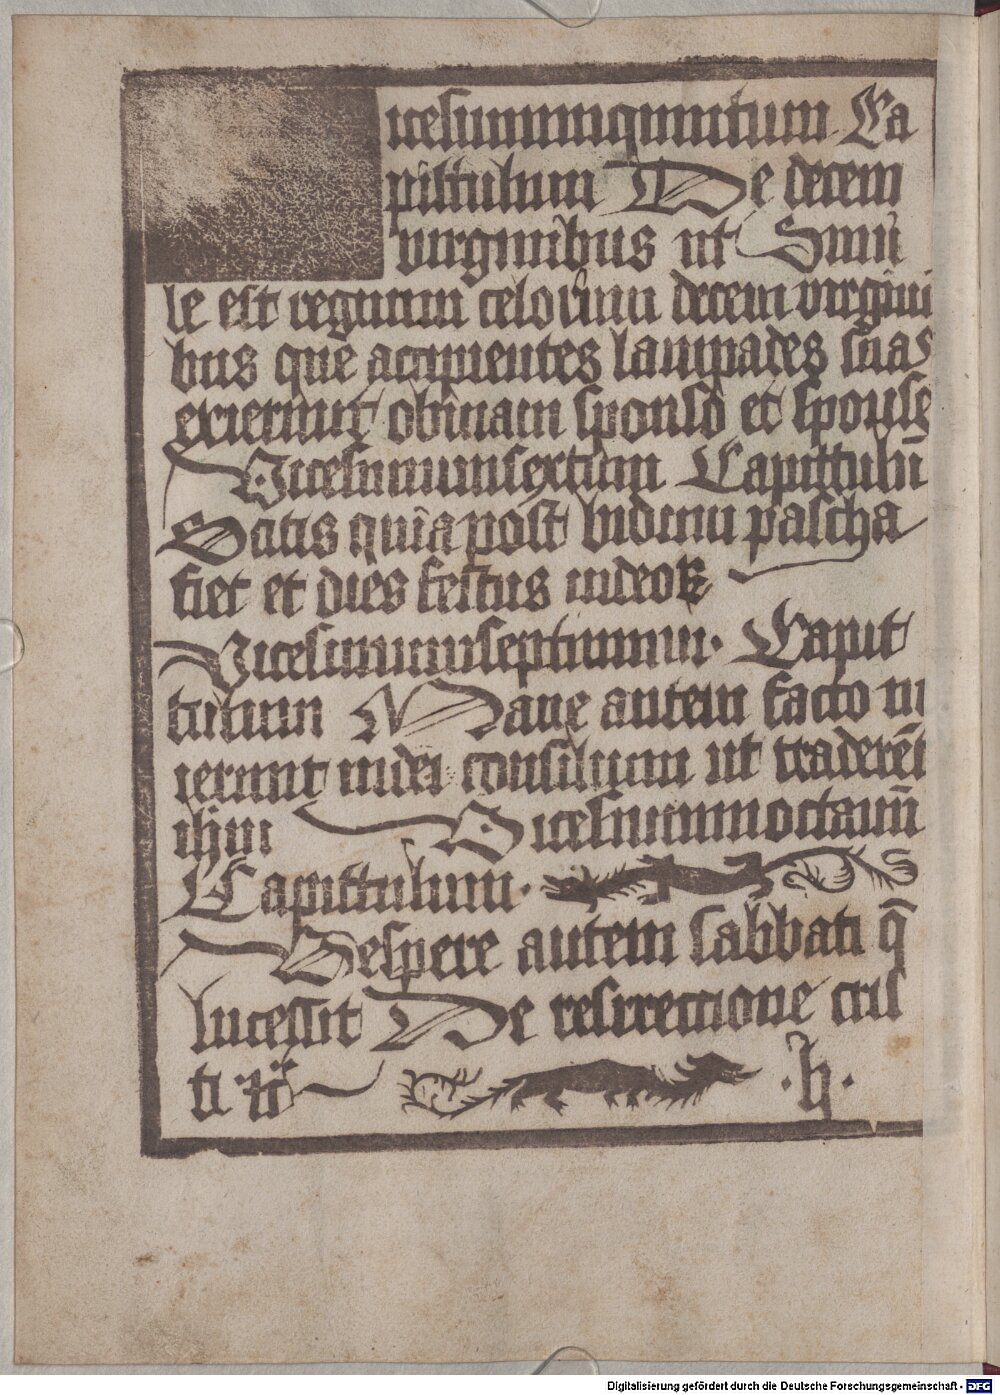 icesimumquintum Ca
pittulum De decem
virginibus ut Simi
le est regnum celorum decem virgini
bus que accipientes lampades suas
exierunt obuiam sponso et sponse
Vicesimumsextum Capittulū
Scitis quia post biduum pascha
fiet et dies festus iudeoꝝ
Vicesimumseptimum. Capit
tulum Mane autem facto in
ierunt iudei consilium ut traderēt
ihm Vicesimumoctauū
Capittulum.
Vespere autem sabbati q̄
lucessit De resurrectione cris
ti .h.
Digitalisierung gefördert durch die Deutsche Forschungsgemeinschaft - DFG